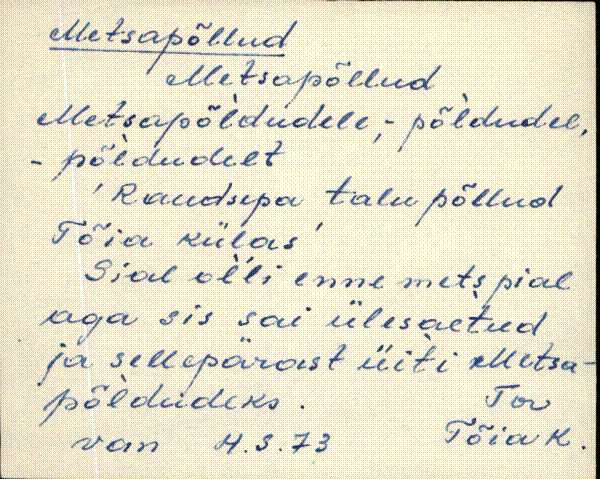 Metsapõllud
Metsapõllud
Metsapõldudele, - põldudel,
- põldudelt
'Raudsepa talu põllud
Tõia külas'
Sial olli enne mets pial
aga sis sai ülesaetud
ja sellepärast üiti Metsa-
põldudeks. Tor
van H.S. 73 Tõia k.